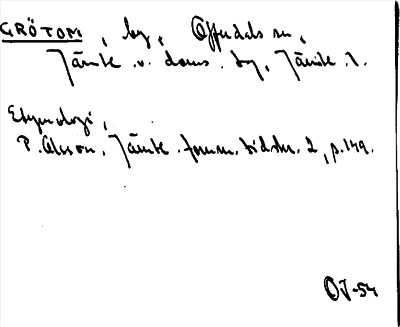 GRÖTOM, by, Offerdals sn,
Jämtl. v. doms. tg, Jämtl. l.
Etymologi,
P. Olsson, Jämtl. fornm. tidskr. 2, p. 149.
OJ-54